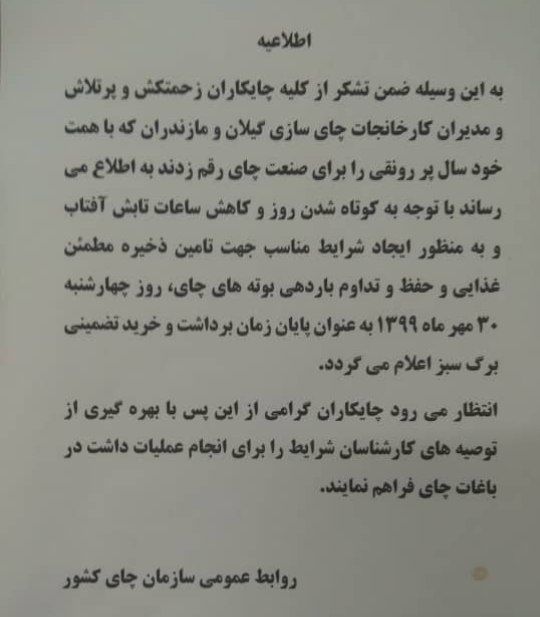 اطلاعیه
به این وسیله ضمن تشکر از کلیه چایکاران زحمتکش و پرتلاش
و مدیران کارخانجات چای سازی گیلان و مازندران که با همت
خود سال پر رونقی را برای صنعت چای رقم زدند به اطلاع می
رساند با توجه به کوتاه شدن روز و کاهش ساعات تابش آفتاب
و به منظور ایجاد شرایط مناسب جهت تامین ذخیره مطمئن
غذایی و حفظ و تداوم باردهی بوته های چای، روز چهارشنبه
۳۰ مهر ماه ۱۳۹۹ به عنوان پایان زمان برداشت و خرید تضمینی
برگ سبز اعلام می گردد.
انتظار می رود چایکاران گرامی از این پس با بهره گیری از
توصیه های کارشناسان شرایط را برای انجام عملیات داشت در
باغات چای فراهم نمایند.
روابط عمومی سازمان چای کشور